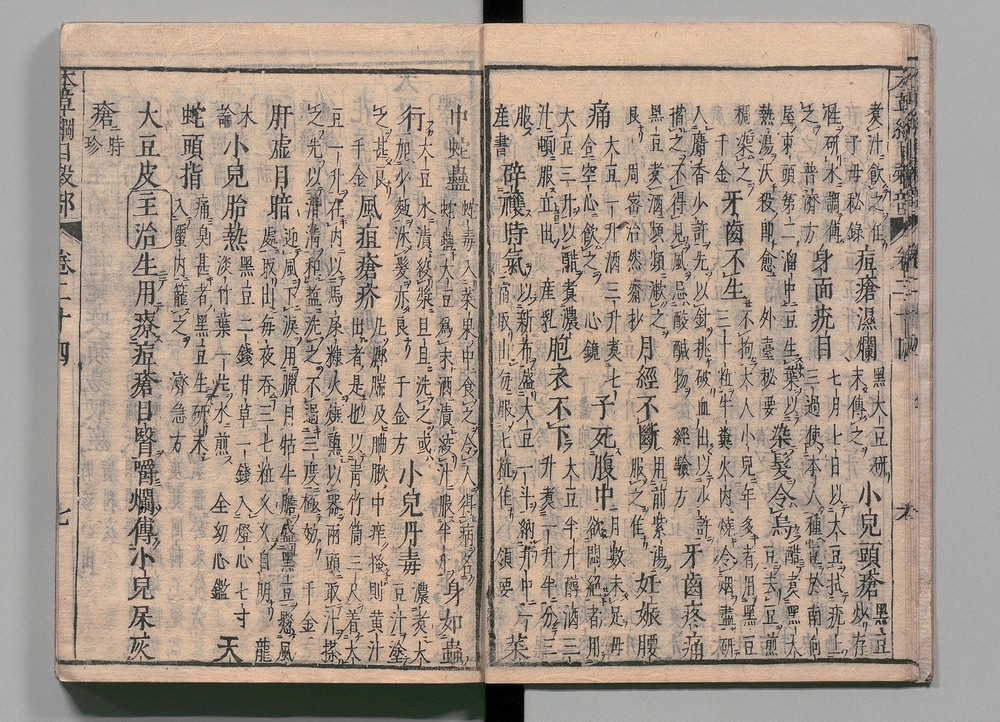 煮汁飲之佳 子母秘錄 痘瘡濕爛 黑大豆研末傅之 小兒頭瘡 黑豆炒存
性研水調傅之 普濟方 身面疣目 七月七日以大豆拭疣上三過使本人種豆於南向
屋東頭第二溜中豆生葉以熱湯沃殺即愈 外臺秘要 染髮令烏 醋煮黑大豆去豆煎
稠染之 千金 牙齒不生 不拘大人小兒年多者用黑豆三十粒牛糞火內燒令烟盡研
入麝香少許先以針挑破血出以少許揩之不得見風忌酸鹹物 經驗方 牙齒疼痛
黑豆煮酒頻頻漱之良 周密浩然齋抄 月經不斷 用前紫湯服之佳 妊娠腰
痛 大豆一升酒三升煮七合空心飲之 心鏡 子死腹中 月數未足母欲悶絕者用
大豆三升以醋煮濃汁頓服立出 產乳 胞衣不下 大豆半升醇酒三升煮一升半分三
服 產書 辟禳時氣 以新布盛大豆一斗納井中一宿取出每服七粒佳 類要 菜
中蛇蠱 蛇毒入菜果中食之令人得病名蛇蠱大豆爲末酒漬絞汁服半升 身如蟲
行 大豆水漬絞漿旦旦洗之或加少麪沐髮亦良 千金方 小兒丹毒 濃煮大豆汁塗
之甚良 千金 風疽瘡疥 凡腳腨及中痒搔則黃汁出者是也以青竹筒三尺着大
豆一升在內以馬屎糠火燒熏以器兩頭取汁搽之先以泔清和鹽洗之不過三度極效 千金
肝虛目暗 迎風下淚用臘月牯牛膽盛黑豆懸風處取出每夜吞三七粒久久自明 龍
木論 小兒胎熱 黑豆二錢甘草一錢入燈心七寸淡竹葉一片水煎 全幼心鑑 天
蛇頭指 痛臭甚者黑豆生研末入內籠之 濟急方
大豆皮 主治 生用療痘瘡目瞖嚼爛傅小兒尿灰
瘡 時珍
本草綱目穀部 卷二十四 七